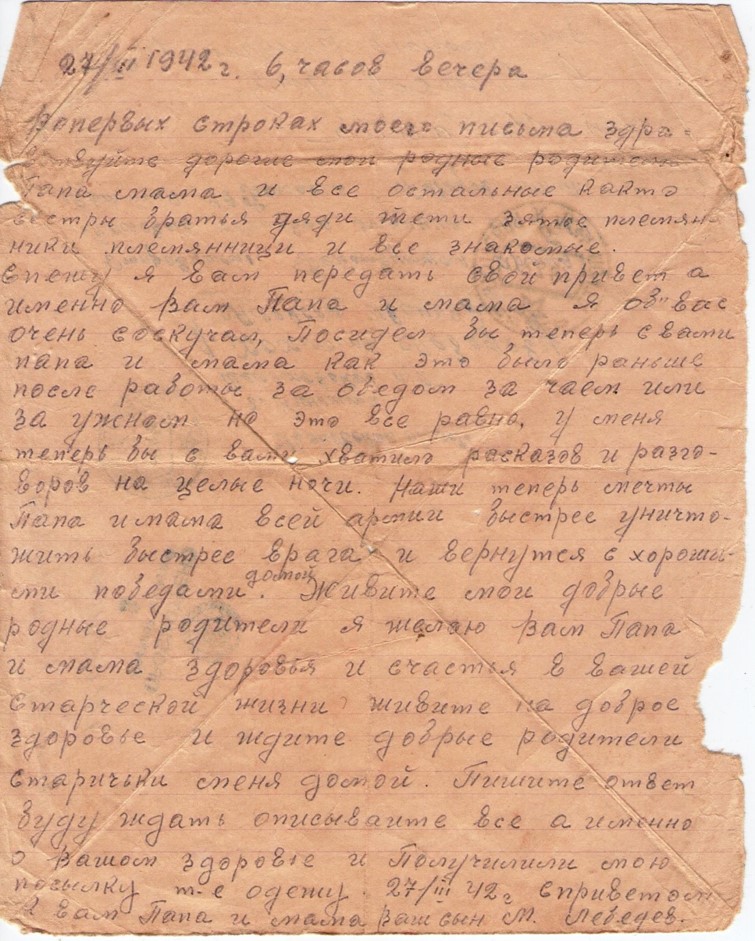 27/III 1942 г. 6, часов вечера
Вопервых строках моего письма здра-
ствуйте дорогие мои родные родители
папа мама и все остальные както
сестры братья дяди тети зятье племян-
ники племянници и все знакомые.
Спешу я вам передать свой привет а
именно Вам Папа и мама я об вас
очень соскучал, Посидел бы теперь с вами
папа и мама как это было раньше
после работы за обедом за чаем или
за ужном но это все равно, у меня
теперь бы с вами хватило расказов и разго-
воров на целые ночи. Наши теперь мечты
Папа и мама всей армии быстрее уничто-
жить быстрее врага и вернутся с хороши-
ми победами домой. Живите мои добрые
родные родители я желаю Вам Папа
и мама здоровья и счастья в вашей
старческой жизни живите на доброе
здоровье и ждите добрые родители
старичьки меня домой. Пишите ответ
буду ждать описываите все а именно
о вашом здоровье и Получилили мою
посылку т-е одежу. 27/III 42 г с приветом
к вам Папа и мама ваш сын М. Лебедев.